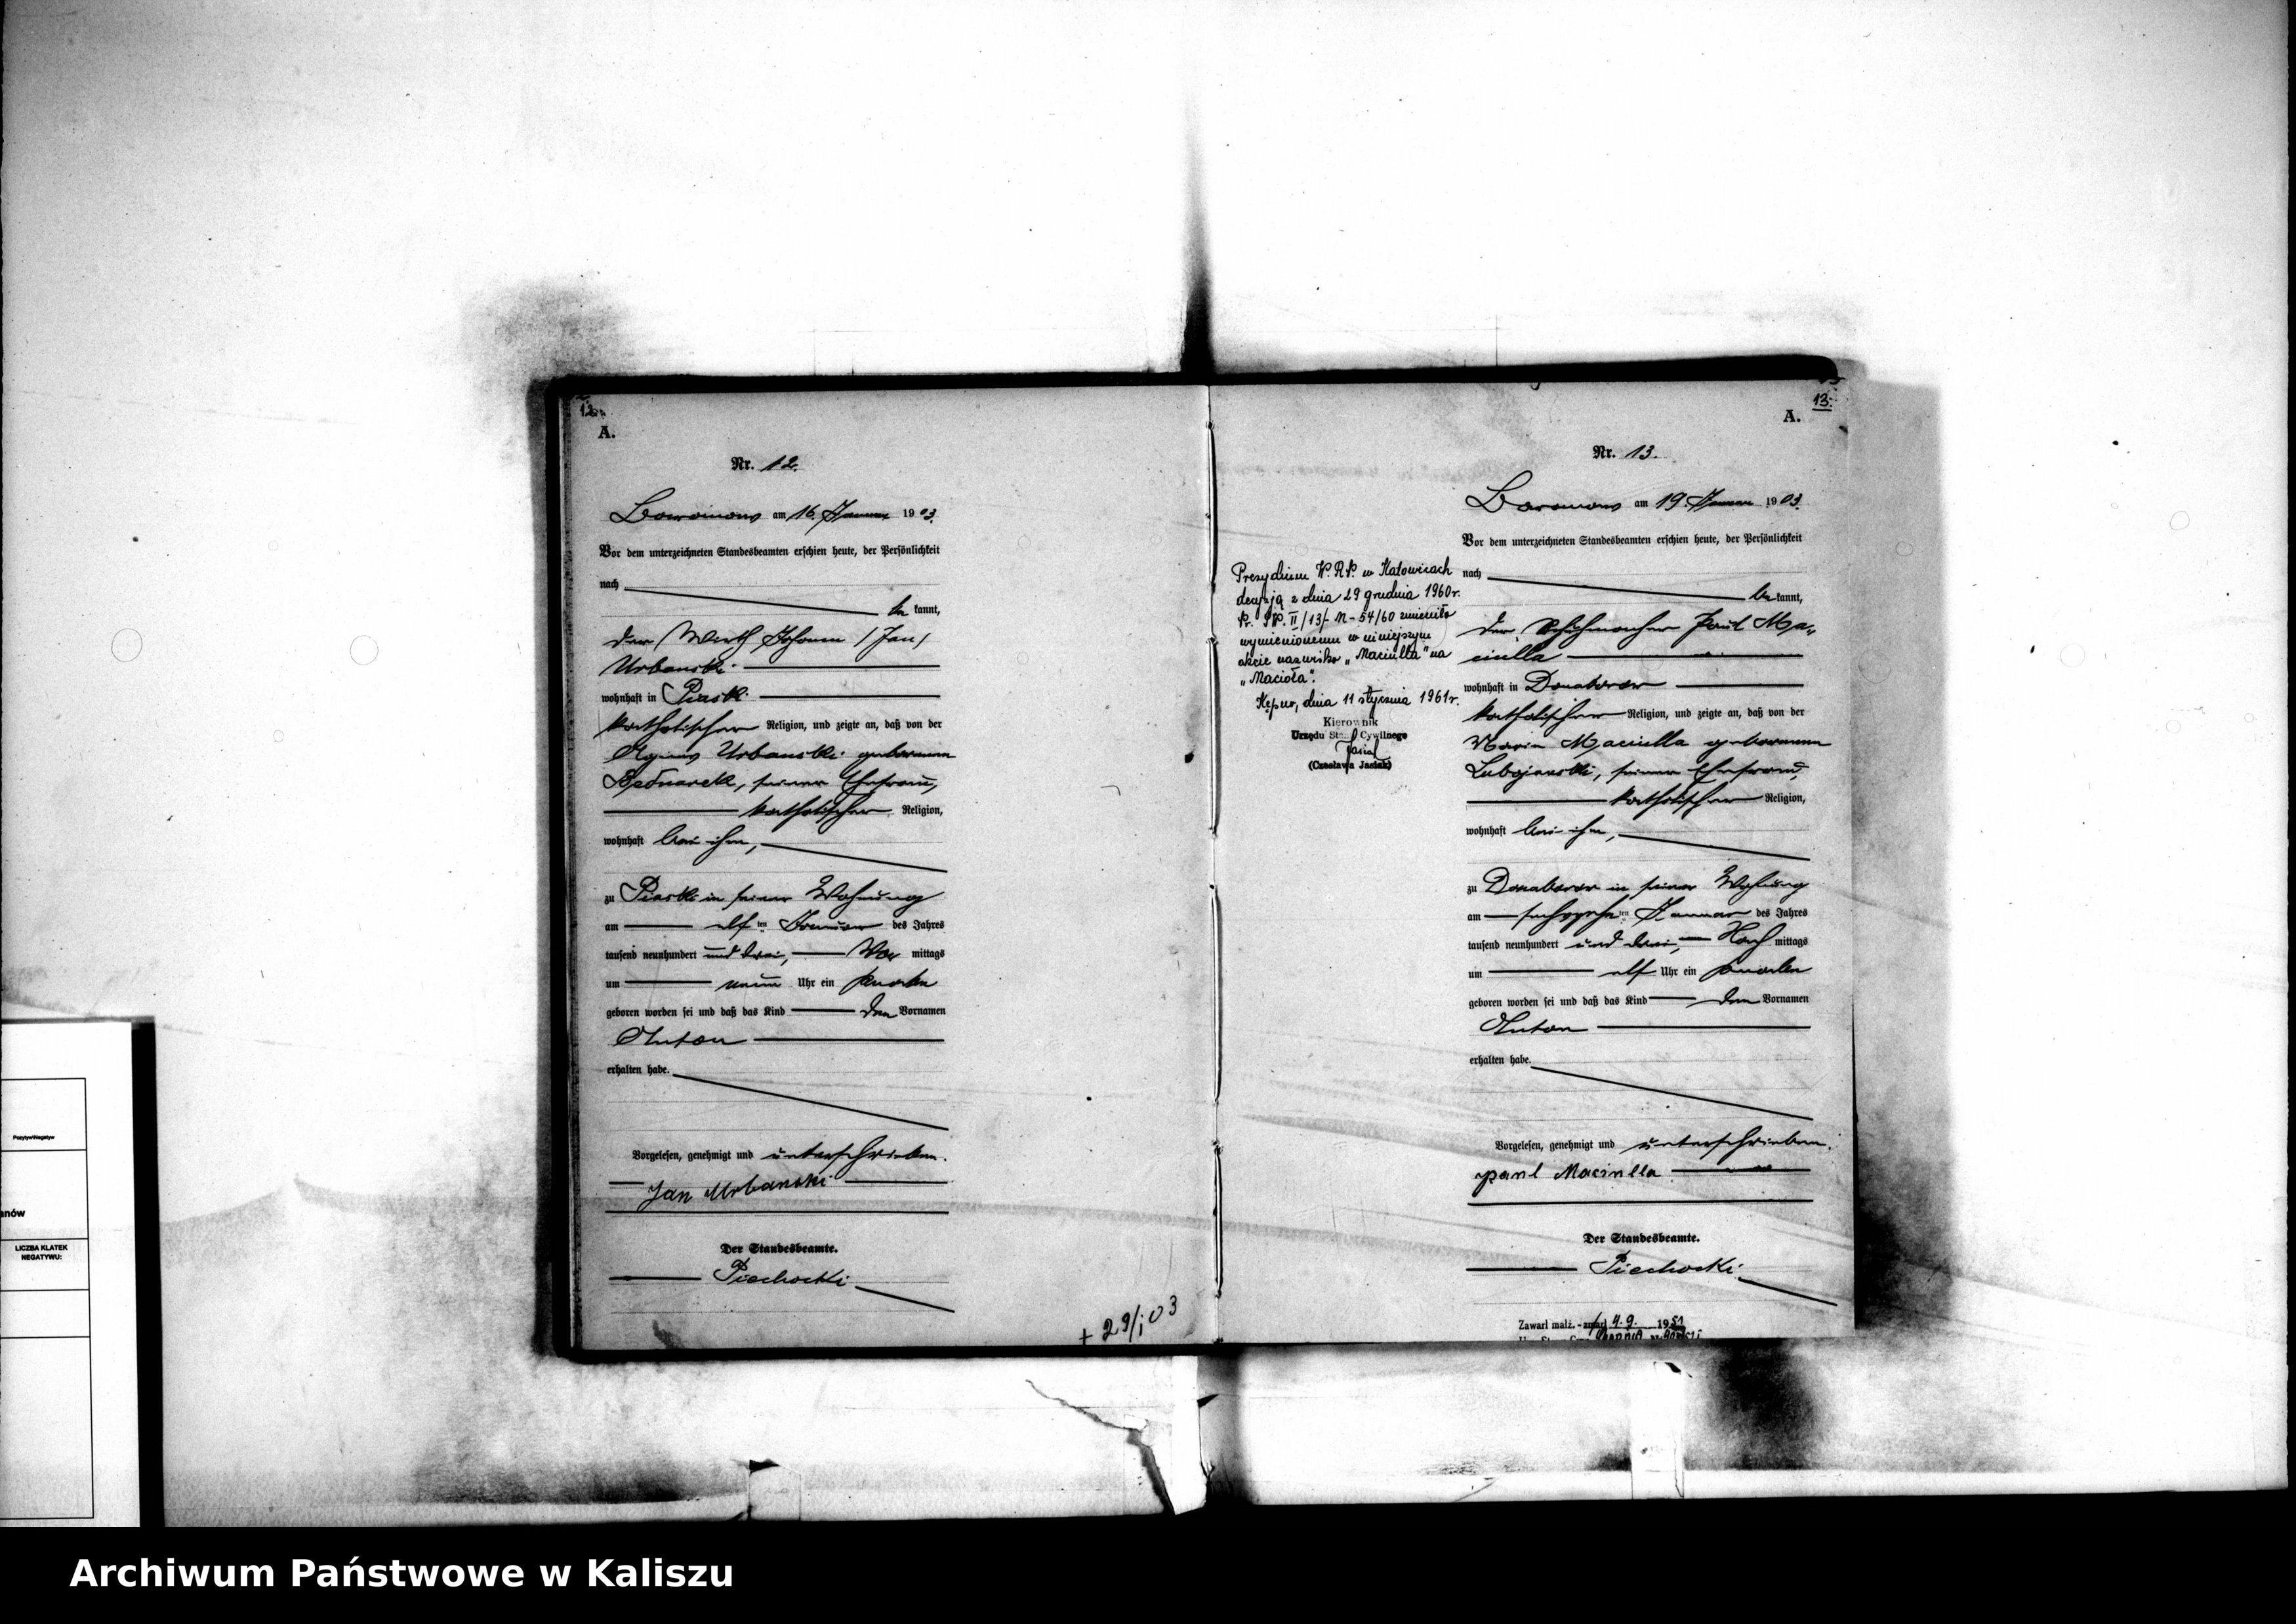 12.
A.
Nr. 12.
Boromow am 16. Januar 1903.
Vor dem unterzeichneten Standesbeamten erschien heute, der Persönlichkeit
nach
bekannt,
der Wirth Johann /Jan/
Urbanski
wohnhaft in Piaski
katholischer Religion, und zeigte an, daß von der
Agnes Urbanski geborenen
Bednarek, seiner Ehefrau,
katholischer Religion,
wohnhaft bei ihm,
zu Piaski in seiner Wohnung
am elf ten Januar des Jahres
tausend neunhundert und drei, Vor mittags
um neun Uhr ein Knabe
geboren worden sei und daß das Kind den Vornamen
Anton
erhalten habe.
Vorgelesen, genehmigt und unterschrieben.
Jan Urbanski
Der Standesbeamte.
Piechocki
+ 29/i 03
13.
A.
Nr. 13.
Boromow am 19. Januar 1903.
Vor dem unterzeichneten Standesbeamten erschien heute, der Persönlichkeit
nach
bekannt,
der Schuhmacher Paul Ma-
ciulla
wohnhaft in Donaborow
katholischer Religion, und zeigte an, daß von der
Maria Maciulla geborenen
Lubojanski, seiner Ehefrau,
katholischer Religion,
wohnhaft bei ihm,
zu Donaborow in seiner Wohnung
am sechszehn ten Januar des Jahres
tausend neunhundert und drei, Nach mittags
um elf Uhr ein Knabe
geboren worden sei und daß das Kind den Vornamen
Anton
erhalten habe.
Vorgelesen, genehmigt und unterschrieben.
Paul Maciulla
Der Standesbeamte.
Piechocki
Prezydium W.R.N. w Katowicach
decyzją z dnia 29 grudnia 1960r.
Nr. II/13/-N-54/60 zmieniło
wymienionemu w niniejszym
akcie nazwisko „Maciulla" na
„Macioła".
Kępno, dnia 11 stycznia 1961r.
Kierownik
Urzędu Stanu Cywilnego
Jasiak
(Czesława Jasiak)
Zawarł małż. - zmarł 4.9. 1951
LICZBA KLATEK
NEGATYWU:
Archiwum Państwowe w Kaliszu